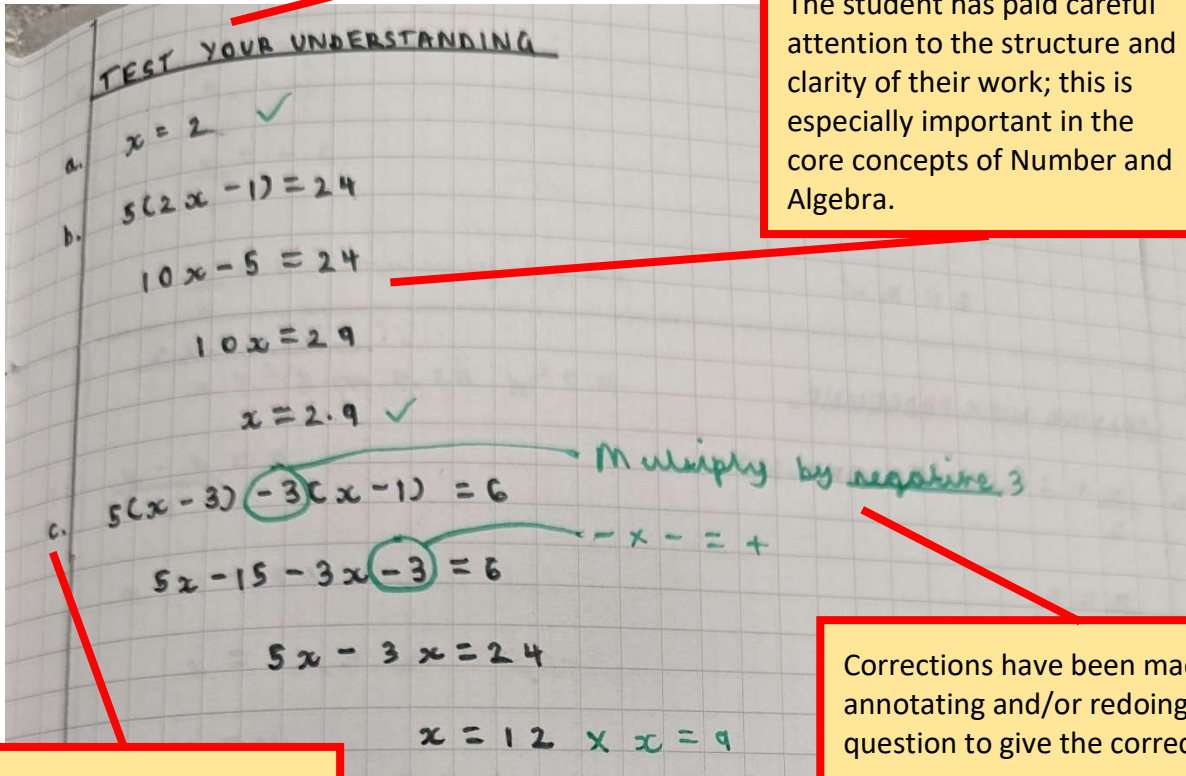 The student has paid careful
attention to the structure and
clarity of their work; this is
especially important in the
core concepts of Number and
Algebra.
TEST YOUR UNDERSTANDING
a. x = 2 ✓
b. 5(2x - 1) = 24
10x - 5 = 24
10x = 29
x = 2.9 ✓
Multiply by negative 3
c. 5(x - 3) - 3(x - 1) = 6
- x - = +
5x - 15 - 3x - 3 = 6
5x - 3x = 24
x = 12 × x = 9
Corrections have been
annotating and/or redoing
question to give the